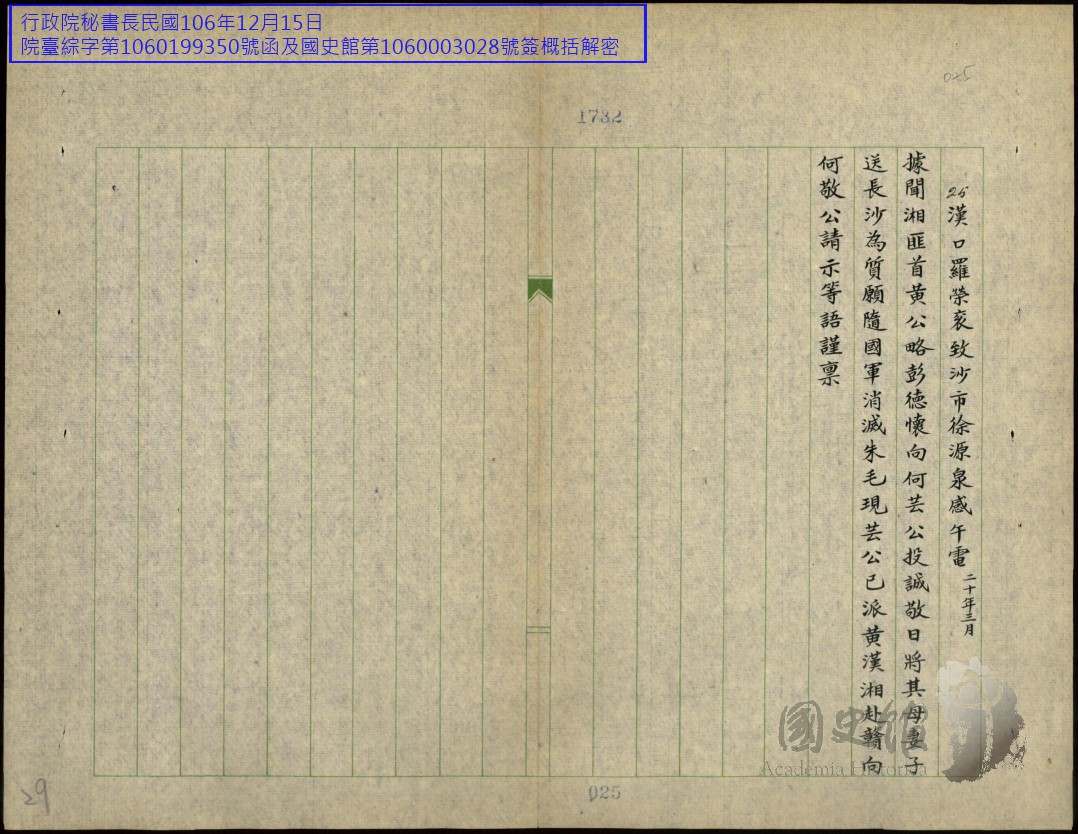 行政院秘書長民國106年12月15日
院臺綜字第1060199350號函及國史館第1060003028號簽概括解密
025
1732
25 漢口羅榮袞致沙市徐源泉感午電 二十年三月
據聞湘匪首黃公略彭德懷向何芸公投誠敬日將其母妻子
送長沙為質願隨國軍消滅朱毛現芸公已派黃漢湘赴贛向
何敬公請示等語謹稟
國史館
Academia Historica
025
29